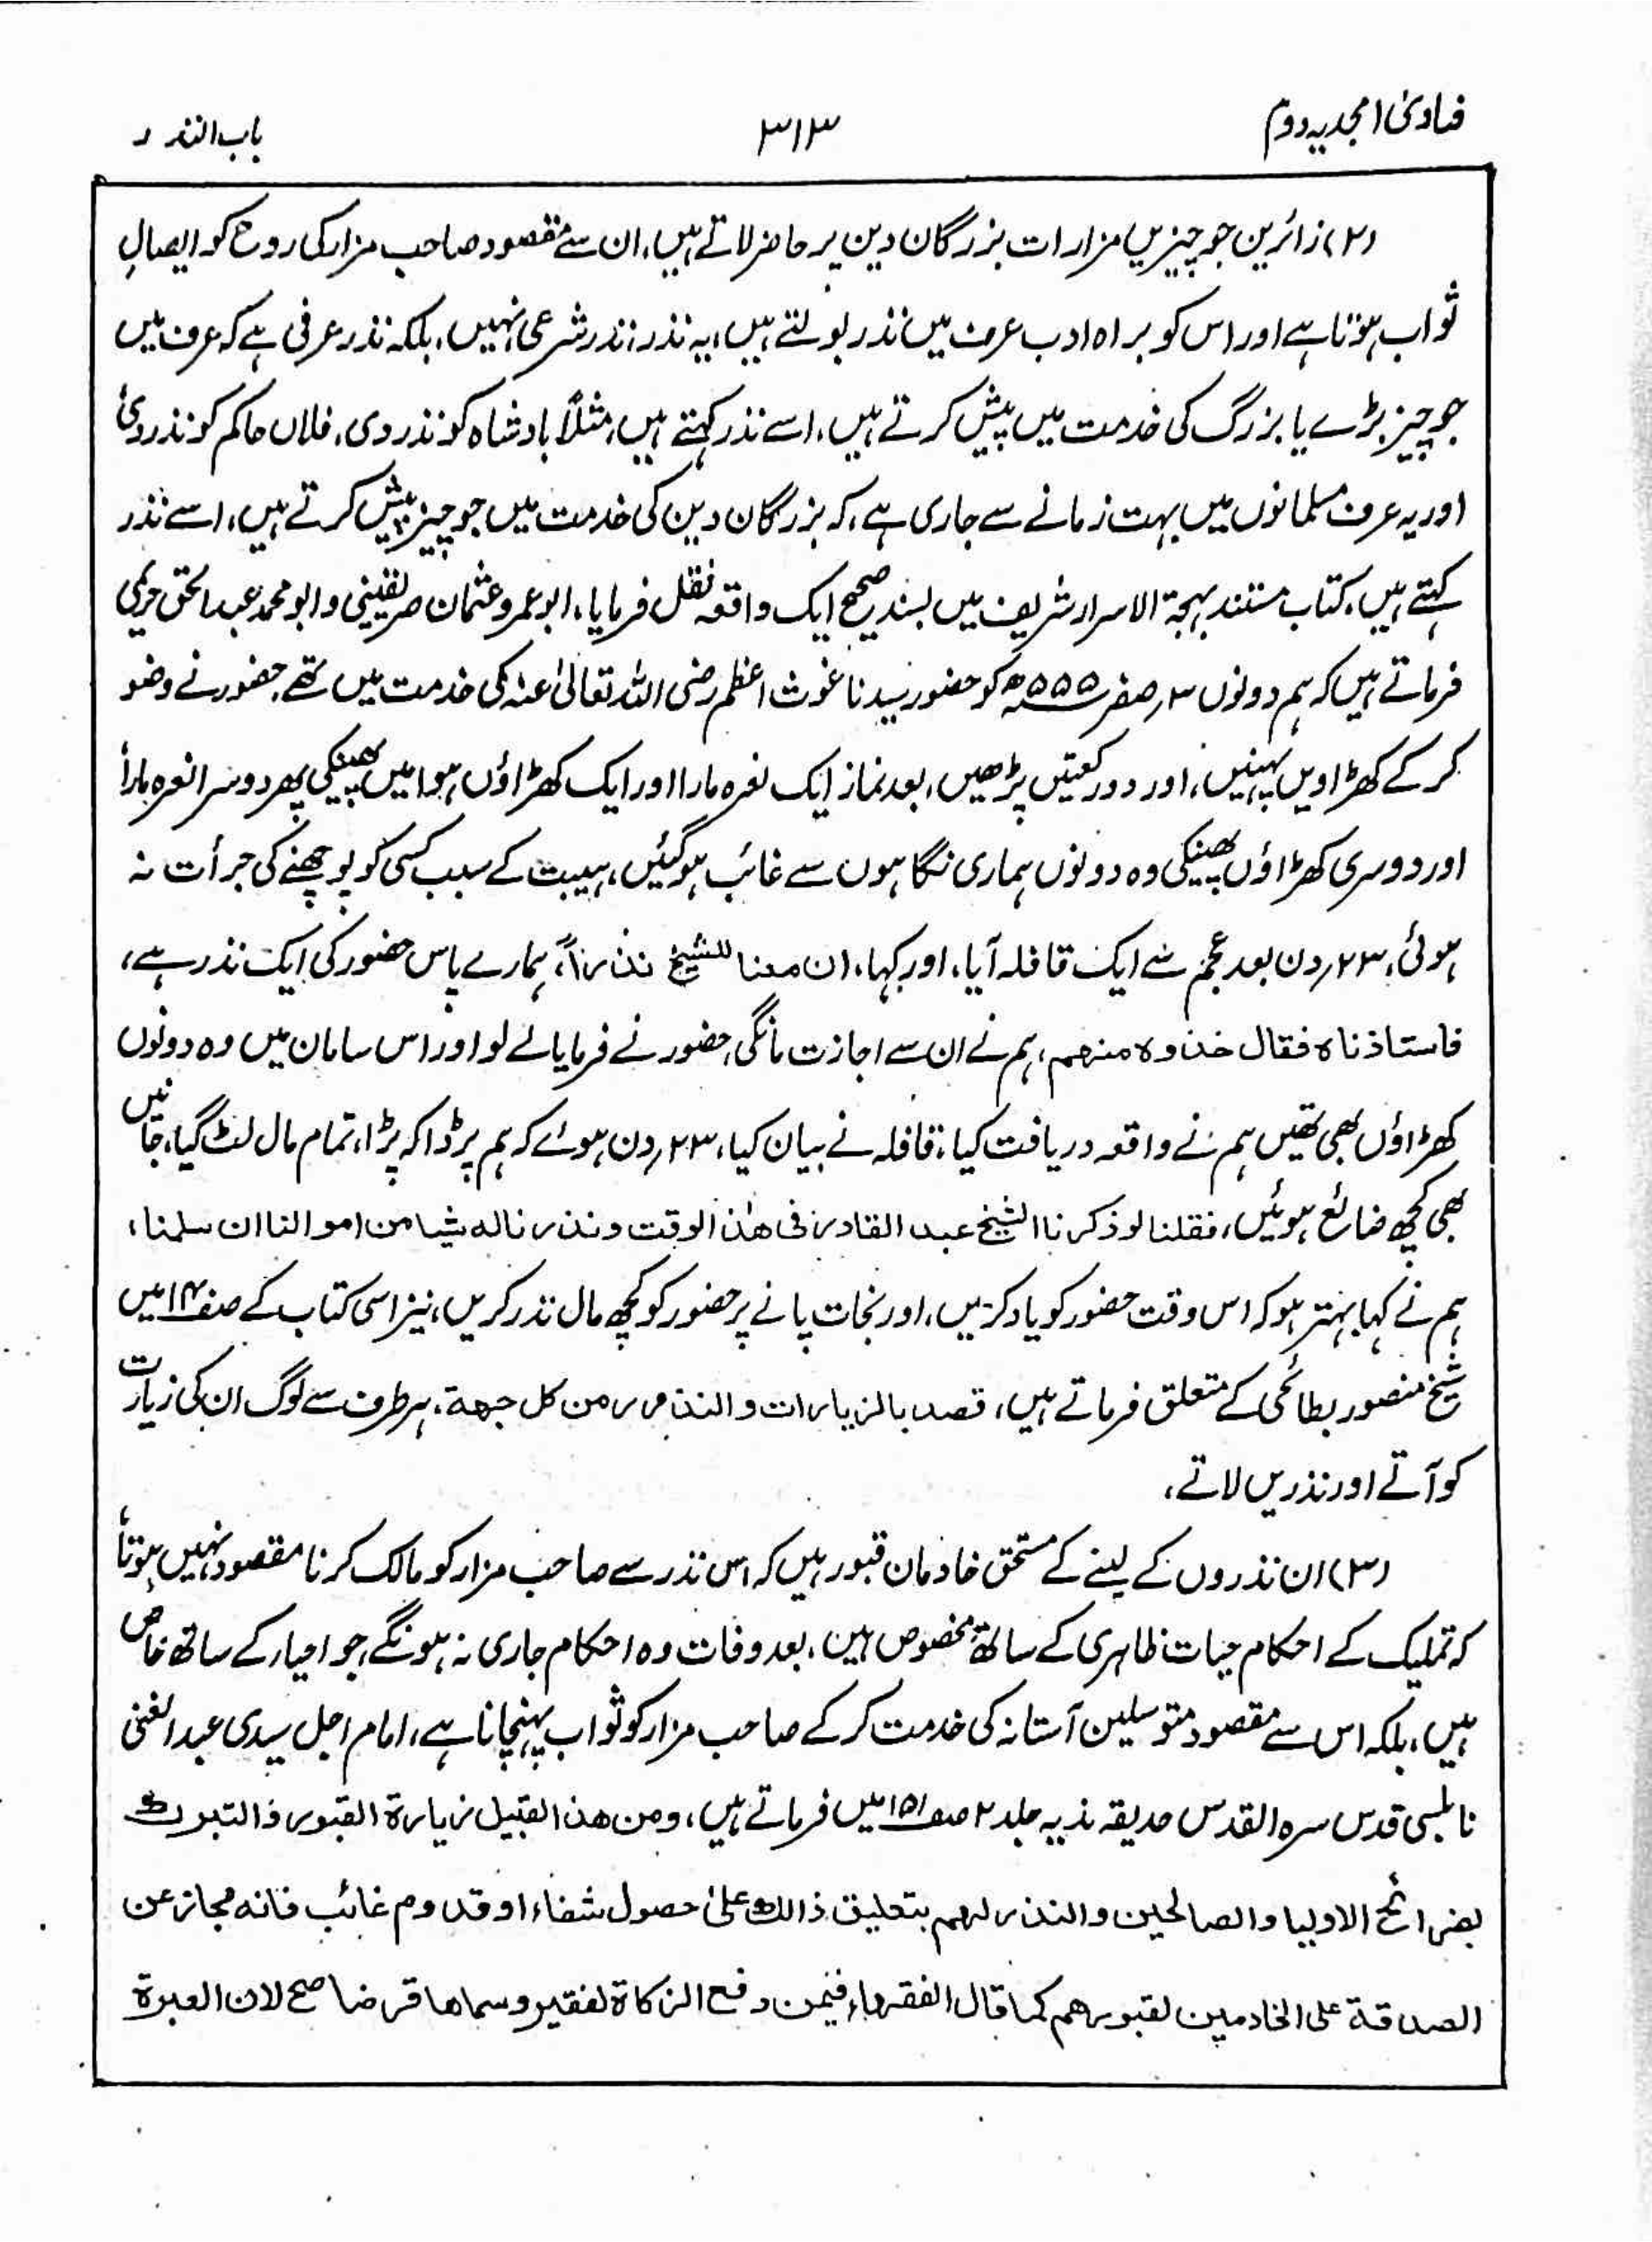 فتاویٰ امجدیہ دوم
۳۱۳
باب النذر
(۲) زائرین جو چیزیں مزارات بزرگان دین پر حاضر لاتے ہیں، ان سے مقصود صاحب مزار کی روح کو ایصالِ
ثواب ہوتا ہے اور اس کو براہ ادب عرف میں نذر بولتے ہیں، یہ نذر نذر شرعی نہیں، بلکہ نذر عرفی ہے کہ عرف میں
جو چیز بڑے یا بزرگ کی خدمت میں پیش کرتے ہیں، اسے نذر کہتے ہیں، مثلاً بادشاہ کو نذر دی، فلاں حاکم کو نذر دی،
اور یہ عرف مسلمانوں میں بہت زمانے سے جاری ہے، کہ بزرگان دین کی خدمت میں جو چیز پیش کرتے ہیں، اسے نذر
کہتے ہیں، کتاب مستند بہجۃ الاسرار شریف میں بسند صحیح ایک واقعہ نقل فرمایا، ابو عمرو عثمان صریفینی و ابو محمد عبدالحق حریمی
فرماتے ہیں کہ ہم دونوں ۳؍ صفر ۵۵۵ھ کو حضور سیدنا غوث اعظم رضی اللہ تعالیٰ عنہ کی خدمت میں تھے، حضور نے وضو
کر کے کھڑاویں پہنیں، اور دو رکعتیں پڑھیں، بعد نماز ایک نعرہ مارا اور ایک کھڑاؤں ہوا میں پھینکی پھر دوسرا نعرہ مارا
اور دوسری کھڑاؤں پھینکی وہ دونوں ہماری نگاہوں سے غائب ہوگئیں، ہیبت کے سبب کسی کو پوچھنے کی جرأت نہ
ہوئی، ۲۳؍ دن بعد عجم سے ایک قافلہ آیا، اور کہا، ان معنا للشیخ نذراً، ہمارے پاس حضور کی ایک نذر ہے،
فاستاذناہ فقال خذوہ منھم، ہم نے ان سے اجازت مانگی، حضور نے فرمایا لے لو اور اس سامان میں وہ دونوں
کھڑاؤں بھی تھیں ہم نے واقعہ دریافت کیا، قافلہ نے بیان کیا، ۲۳؍ دن ہوئے کہ ہم پر ڈاکہ پڑا، تمام مال لٹ گیا، جانیں
بھی کچھ ضائع ہوئیں، فقلنا لو ذکرنا الشیخ عبد القادر فی ھٰذا الوقت ونذرنا لہ شیا من اموالنا ان سلمنا،
ہم نے کہا بہتر ہو کہ اس وقت حضور کو یاد کریں، اور نجات پانے پر حضور کو کچھ مال نذر کریں، نیز اسی کتاب کے میں
شیخ منصور بطائحی کے متعلق فرماتے ہیں، قصد بالزیارات والنذور من کل جھۃ، ہر طرف سے لوگ ان کی زیارت
کو آتے اور نذریں لاتے،
(۳) ان نذروں کے لینے کے مستحق خادمان قبور ہیں کہ اس نذر سے صاحب مزار کو مالک کرنا مقصود نہیں ہوتا
کہ تملیک کے احکام حیات ظاہری کے ساتھ مخصوص ہیں، بعد وفات وہ احکام جاری نہ ہونگے جو احیاء کے ساتھ خاص
ہیں، بلکہ اس سے مقصود متوسلین آستانہ کی خدمت کر کے صاحب مزار کو ثواب پہنچانا ہے، امام اجل سیدی عبدالغنی
نابلسی قدس سرہ القدس حدیقہ ندیہ جلد ۲ صفہ ۱۵۱ میں فرماتے ہیں، ومن ھذا القبیل زیارۃ القبور والتبرک
بضرائح الاولیا والصالحین والنذر لھم بتعلیق ذالک علیٰ حصول شفاء او قدوم غائب فانہ مجاز عن
الصدقۃ علی الخادمین لقبورھم کما قال الفقہاء فیمن دفع الزکاۃ لفقیر وسماھا قرضا صح لان العبرۃ